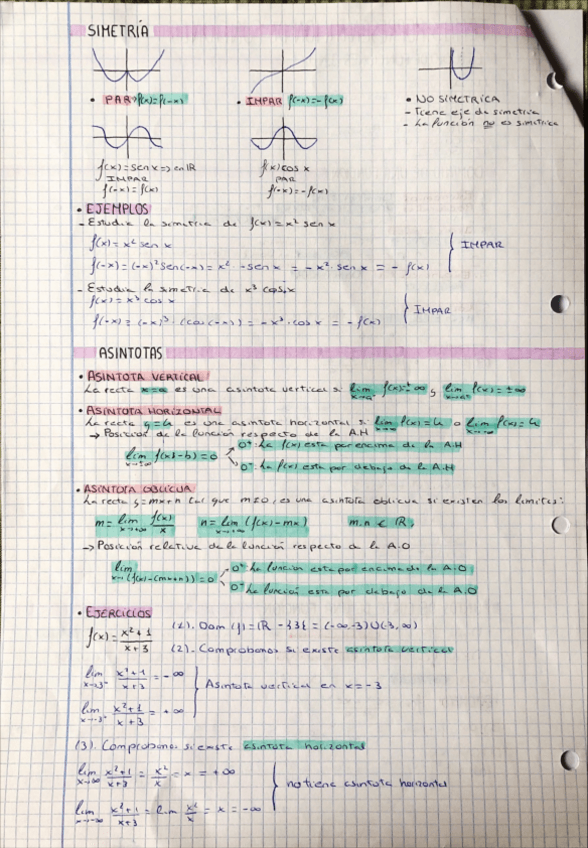 SIMETRÍA
• PAR → f(x)=f(-x)   • IMPAR f(-x)=-f(x)   • NO SIMETRICA
- Tiene eje de simetria
- La función no es simetrica
f(x)=sen x => en IR   f(x) cos x
IMPAR   PAR
f(-x)=f(x)   f(-x)=-f(x)
• EJEMPLOS
- Estudia la simetria de f(x)=x² sen x
f(x)=x² sen x
IMPAR
f(-x)=(-x)² sen(-x)=x² · -sen x = -x² · sen x = - f(x)
- Estudia la simetria de x³ cos x
f(x)=x³ cos x
IMPAR
f(-x)=(-x)³ · (cos(-x))=-x³ · cos x = -f(x)
ASINTOTAS
• ASINTOTA VERTICAL
La recta x=a es una asintota vertical si lim f(x)=±∞ y lim f(x)=±∞
• ASINTOTA HORIZONTAL
La recta es una asintota horizontal si lim f(x)= o lim f(x)=
→ Posicion de la función respecto de la A.H
0⁺: La f(x) esta por encima de la A.H
lim (f(x)-b)=0
x→±∞
0⁻: La f(x) esta por debajo de la A.H
• ASINTOTA OBLICUA
La recta y=mx+n tal que m≠0, es una asintota oblicua si existen los limites:
m=lim f(x)/x   n=lim (f(x)-mx)   m,n ∈ IR,
→ Posición relativa de la función respecto a la A.O
0⁺: La función esta por encima de la A.O
lim (f(x)-(mx+n))=0
0⁻: La función esta por debajo de la A.O
• EJERCICIOS
f(x)=x²+1/x+3   Dom (f)=IR -{3}=(-∞,-3)∪(-3,∞)
(2). Comprobamos si existe asintota vertical
lim x²+1/x+3 = -∞
Asintota vertical en x=-3
lim x²+1/x+3 = +∞
(3). Comprobamos si existe asintota horizontal
lim x²+1/x+3 = x²/x = x = +∞
no tiene asintota horizontal
lim x²+1/x+3 = lim x²/x = x = -∞